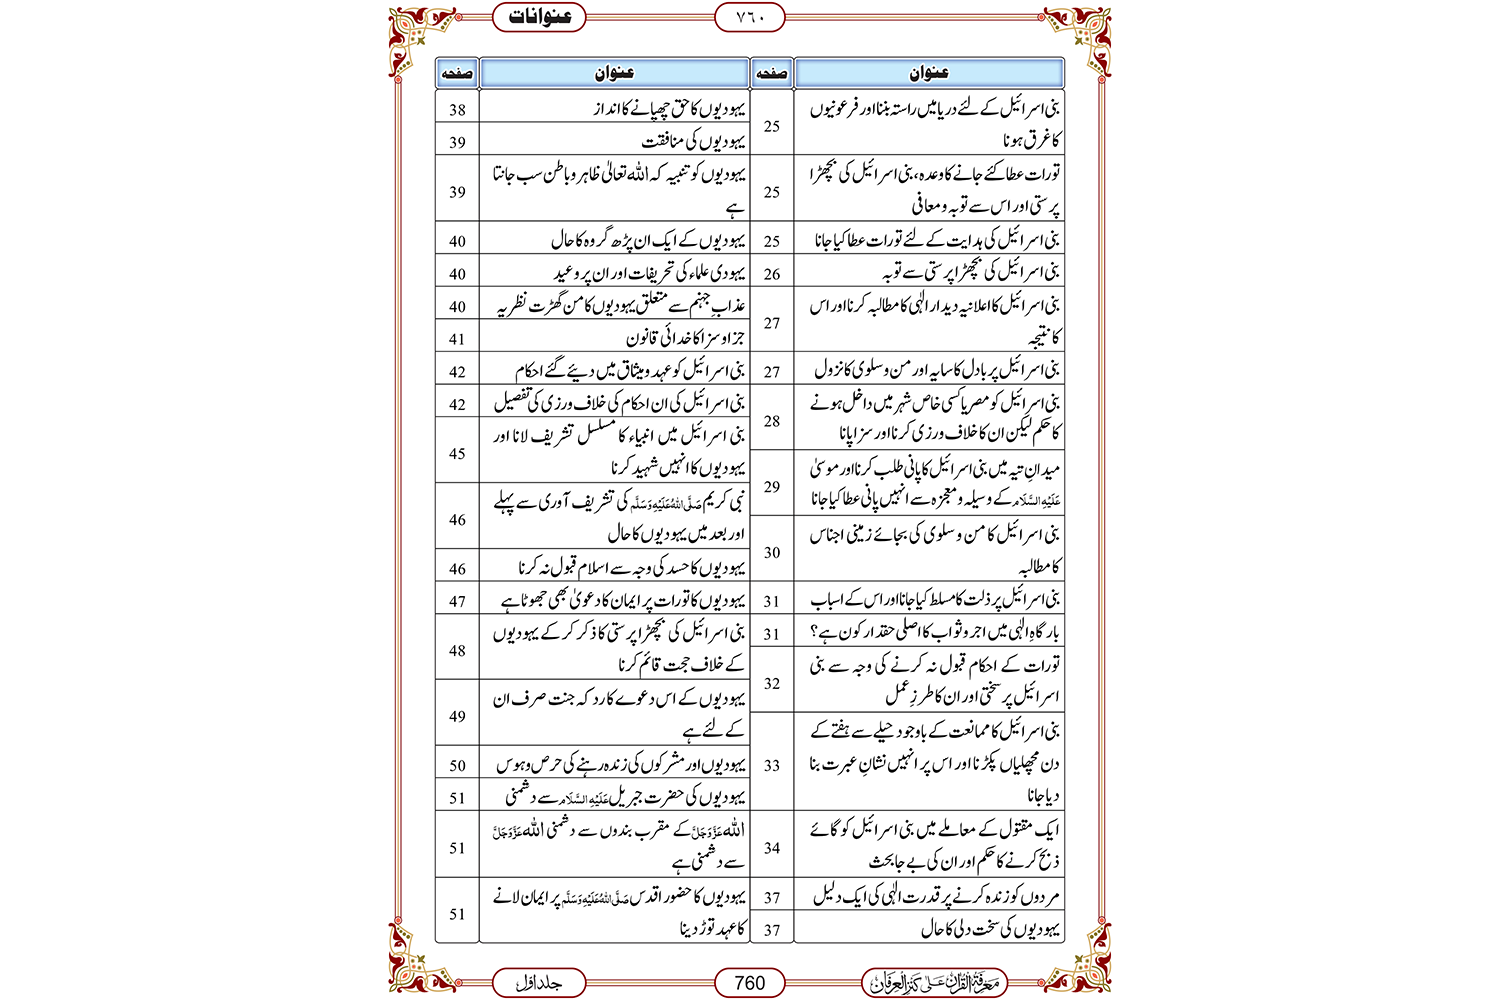 عنوانات
٧٦٠
عنوان
صفحہ
بنی اسرائیل کے لئے دریا میں راستہ بننا اور فرعونیوں
کا غرق ہونا
25
تورات عطا کئے جانے کا وعدہ، بنی اسرائیل کی بچھڑا
پرستی اور اس سے توبہ و معافی
25
بنی اسرائیل کی ہدایت کے لئے تورات عطا کیا جانا
25
بنی اسرائیل کی بچھڑا پرستی سے توبہ
26
بنی اسرائیل کا اعلانیہ دیدار الٰہی کا مطالبہ کرنا اور اس
کا نتیجہ
27
بنی اسرائیل پر بادل کا سایہ اور من و سلوی کا نزول
27
بنی اسرائیل کو مصر یا کسی خاص شہر میں داخل ہونے
کا حکم لیکن ان کا خلاف ورزی کرنا اور سزا پانا
28
میدانِ تیہ میں بنی اسرائیل کا پانی طلب کرنا اور موسیٰ
عَلَیْہِ السَّلَام کے وسیلہ و معجزہ سے انہیں پانی عطا کیا جانا
29
بنی اسرائیل کا من و سلوی کی بجائے زمینی اجناس
کا مطالبہ
30
بنی اسرائیل پر ذلت کا مسلط کیا جانا اور اس کے اسباب
31
بارگاہِ الٰہی میں اجر و ثواب کا اصلی حقدار کون ہے؟
31
تورات کے احکام قبول نہ کرنے کی وجہ سے بنی
اسرائیل پر سختی اور ان کا طرزِ عمل
32
بنی اسرائیل کا ممانعت کے باوجود حیلے سے ہفتے کے
دن مچھلیاں پکڑنا اور اس پر انہیں نشانِ عبرت بنا
دیا جانا
33
ایک مقتول کے معاملے میں بنی اسرائیل کو گائے
ذبح کرنے کا حکم اور ان کی بے جا بحث
34
مردوں کو زندہ کرنے پر قدرت الٰہی کی ایک دلیل
37
یہودیوں کی سخت دلی کا حال
37
عنوان
صفحہ
یہودیوں کا حق چھپانے کا انداز
38
یہودیوں کی منافقت
39
یہودیوں کو تنبیہ کہ اللہ تعالیٰ ظاہر و باطن سب جانتا
ہے
39
یہودیوں کے ایک ان پڑھ گروہ کا حال
40
یہودی علماء کی تحریفات اور ان پر وعید
40
عذابِ جہنم سے متعلق یہودیوں کا من گھڑت نظریہ
40
جزا و سزا کا خدائی قانون
41
بنی اسرائیل کو عہد و میثاق میں دیئے گئے احکام
42
بنی اسرائیل کی ان احکام کی خلاف ورزی کی تفصیل
42
بنی اسرائیل میں انبیاء کا مسلسل تشریف لانا اور
یہودیوں کا انہیں شہید کرنا
45
نبی کریم صَلَّی اللہُ عَلَیْہِ وَسَلَّم کی تشریف آوری سے پہلے
اور بعد میں یہودیوں کا حال
46
یہودیوں کا حسد کی وجہ سے اسلام قبول نہ کرنا
46
یہودیوں کا تورات پر ایمان کا دعویٰ بھی جھوٹا ہے
47
بنی اسرائیل کی بچھڑا پرستی کا ذکر کر کے یہودیوں
کے خلاف حجت قائم کرنا
48
یہودیوں کے اس دعوے کا رد کہ جنت صرف ان
کے لئے ہے
49
یہودیوں اور مشرکوں کی زندہ رہنے کی حرص و ہوس
50
یہودیوں کی حضرت جبریل عَلَیْہِ السَّلَام سے دشمنی
51
اللہ عَزَّوَجَلَّ کے مقرب بندوں سے دشمنی اللہ عَزَّوَجَلَّ
سے دشمنی ہے
51
یہودیوں کا حضور اقدس صَلَّی اللہُ عَلَیْہِ وَسَلَّم پر ایمان لانے
کا عہد توڑ دینا
51
معرفۃ القرآن علی کنز العرفان
760
جلد اول